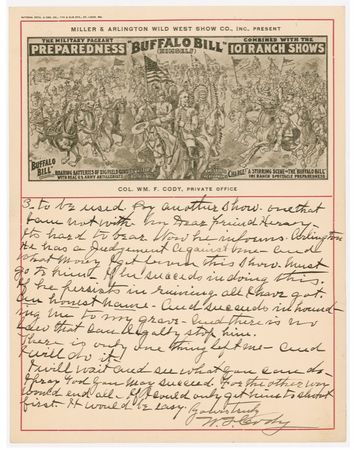 MILLER & ARLINGTON WILD WEST SHOW CO., INC. PRESENT
THE MILITARY PAGEANT
PREPAREDNESS
"BUFFALO BILL"
(HIMSELF)
COMBINED WITH THE
101 RANCH SHOWS
"BUFFALO BILL"
ROARING BATTERIES OF BIG FIELD GUNS
WITH REAL U.S. ARMY ARTILLERISTS
CHARGE!
A STIRRING SCENE THE "BUFFALO BILL"
101 RANCH SPECTACLE PREPAREDNESS
COL. WM. F. CODY, PRIVATE OFFICE
3. to be used for another show. one that
I am not with. My Dear friend
Its hard to bear. Now he informs Arlington
He has a Judgement against me - and
what money I get from this show. Must
go to him. If he succeeds in doing this.
If he persists in ruining all I have got.
An honest name - And succeeds in hound-
ing me to my grave - And there is no
law that can legally stop him.
There is only one thing left me - and
I will do it!
I will wait and see what you can do -
I pray God you may succeed. For the other way
would end all. If I could only get him to shoot
first. It would be easy Yours truly
W. F. Cody